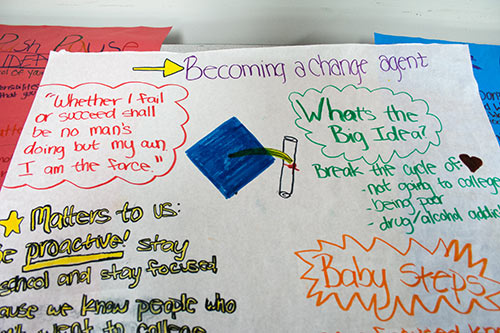 Push Pause
Becoming a change agent
"Whether I fail
or succeed shall
be no man's
doing but my own.
I am the force."
What's the
Big Idea?
Break the cycle of:
- not going to college
- being poor
- drug/alcohol
Matters to us:
be proactive! stay
school and stay focused
because we know people who
went to college
Baby Steps